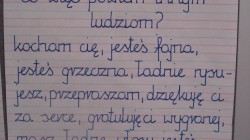 ludziom?
kocham cię, jesteś fajna,
jesteś grzeczna, ładnie rysu-
jesz, przepraszam, dziękuję ci
za serce, gratuluję wygranej,
masz ładne